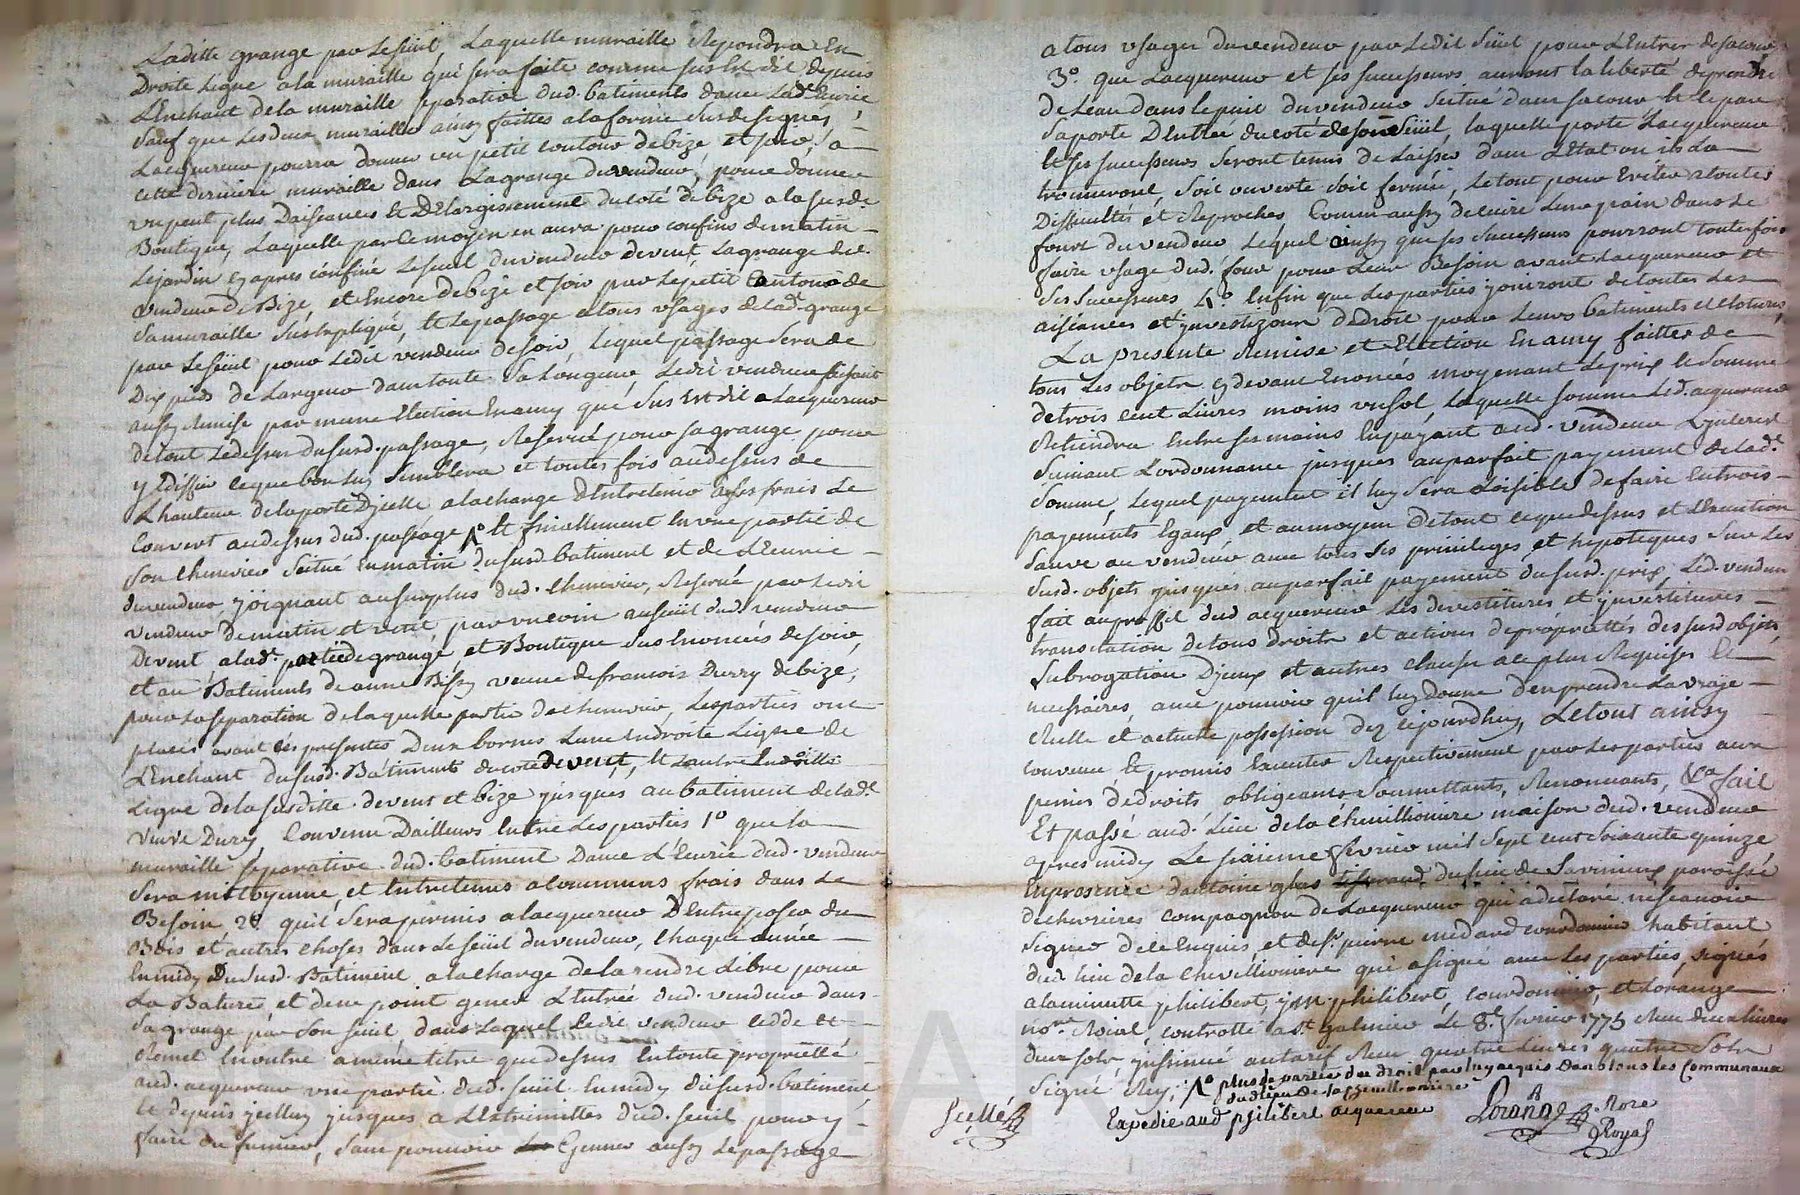 Laditte grange par le süeil, Laquelle muraille Repondra En
Droite Ligne a la muraille qui sera faite comme sus Est dit depuis
L'Enchant de la muraille separative dud. batiments d'avec Lad. Ecurie
Sauf que Les deux muraille ainsy faittes a la forme sus designés,
Lacquereur pourra donner un petit contour de bize et soir, a
cette derniere muraille dans La grange du vendeur, pour donner
un peut plus D'aisances Et D'Elargissement du coté de bize a la susde
Boutique, Laquelle par ce moyen en aura pour confins de matin
Le jardin cy apres confiné Le sueil du vendeur de vent La grange dud.
vendeur de Bize, et Encore de bize et soir par Le petit Contour de
Sa muraille Sus Expliqué, et Le passage et tous usages de lad. grange
par Le süeil pour Ledit vendeur de soir, Lequel passage Sera de
Dix pieds de Largeur dans toute Sa Longueur, Ledit vendeur faisant
aussy Remise par meme Election En amy que Sus Est dit a Lacquereur
de tout Le dessus du susd. passage, Reservé pour sa grange pour
y Ediffier ce que bon Luy Semblera et toutes fois au dessus de
L'hauteur de la porte D'icelle a la charge D'Entretenir a ses frais Le
Couvert au dessus dud. passage, Et finallement En une partie de
son Chenevier Scitué En matin du susd. batiment et de L'Ecurie
du vendeur, joignant au surplus dud. Chenevier, Reservé par Ledit
vendeur de matin et vent, par un coin au süeil dud. vendeur
de vent a lad. partie de grange, et Boutique Sus Enoncées de soir,
et au Batiments de anne Bissy veuve de francois Durry de bize,
pour La separation de laquelle partie de chenevier, Les parties ont
placés avant ces presentes Deux bornes L'une En droite Ligne de
L'Enchant du susd. Batiments du coté de vent, Et L'autre En ditte
Ligne de la susditte de vent et bize jusques au batiment de lad.
veuve Dury, Convenu D'ailleurs Entre Les parties 1º que la
muraille separative dud. batiment D'avec L'Ecurie dud. vendeur
Sera mittoyenne, et Entretenus a communs frais dans Le
Besoin, 2º qu'il Sera permis a lacquereur D'Entreposer du
Bois et autres choses dans Le süeil du vendeur, Chaque année
En midy Du susd. Batiment a la charge de la rendre Libre pour
La Bature, et de ne point gener L'Entrée dud. vendeur dans
Sa grange par Son süeil, dans Laquel Ledit vendeur cedde et
Remet En outre a meme titre que dessus En toute propriété
aud. acquereur une partie dud. süeil En midy du susd. batiment,
Et depuis jcelluy jusques a L'Extremittes dud. süeil pour y
faire du fumier, Sans pouvoir Gener aussy Le passage
a tous usages du vendeur par Ledit Süeil pour L'Entrer de sa cour
3º que Lacquereur et ses successeurs auront la liberté de prendre
de L'eau dans le puit du vendeur Scitué dans sa cour Et Le par
Sa porte D'Entrée du coté de son Süeil, laquelle porte Lacquereur
Et ses successeurs Seront tenus de Laisser dans L'Etat ou ils La
trouveront, Soit ouverte soit fermée, Le tout pour Eviter a toutes
Difficultés et Reproches Comme aussy de cuire Leur pain dans Le
fourt du vendeur Lequel ainsy que ses successeurs pourront toutes fois
faire usage dud. four pour Leur Besoin avant Lacquereur et
Ses Successeurs 4º Enfin que Les parties jouiront de toutes Les
aisances et jnvestizons De Droit pour Leurs batiments et clotures,
La presente Remise et Election En amy faittes de
tous Les objets cy devant Enoncés moyenant Le prix Et Somme
de trois cent Livres moins un sol, Laquelle somme Led. acquereur
Retiendra Entre ses mains En payant aud. vendeur L'jnterest
Suivant L'ordonnance jusques au parfait payement de lad.
Somme, Lequel payement il luy Sera Loisible de faire En trois
payements Egaux, et au moyen De tout ce que dessus et L'Execution
Sauve au vendeur avec tous Ses privileges et hipoteques Sur Les
Susd. objets jusques au parfait payement du susd. prix Led. vendeur
fait au proffit dud. acquereur Les devestitures et jnvestitures
translation de tous Droits et actions de proprietés des susd. objets
Subrogation D'jceux et autres clauses a ce plus Requises Et
necessaires avec pouvoir qu'il luy donne d'en prendre La vraje
Reelle et actuelle possession dez ce jourdhuy, Le tout ainsy
convenu Et promis Executer Respectivement par Les parties aux
peines de droits obligeants Soumettants, Renonceants, fait
Et passé aud. Lieu de la Chevillionière maison dud. vendeur
apres midy Le sixième fevrier mil Sept cent Soixante quinze
En presence d'antoine gbas du lieu de Savineux paroisse
de chevrières compagnon de Lacquereur qui a declaré ne scavoir
signer De ce Enquis, et de Sr. pierre medard courdonnier habitant
dud. Lieu de la Chevillionière qui a signé avec Les parties, signés
a la minutte philibert, j m philibert, courdonnier, et Lorange
nore. Roial, controllé a st. galmier Le 8e. fevrier 1775 Reçu deux livres
deux sols, jnsinué au tarif Reçu quatre Livres quatre Sols
Signé Rey,
plus La partie du droit par luy acquis Dans tous les Communaux
dud. lieu de la Cheuillionniere
Scellé
Expedié aud philibert acquereur
Lorange Nore
Royal